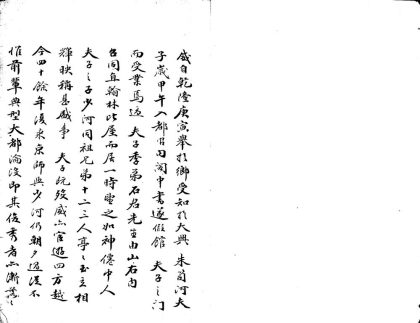 威自乾隆庚寅舉於鄉受知於大興 朱筍河夫
子歲甲午入都寓閣中書遂假館 夫子之門
而受業焉 夫子季弟石君先生由山右內
召同直翰林比屋而居一時望之如神僊中人
夫子之子少河同祖兄弟十二三人亭亭玉立相
輝映稱甚盛事 夫子既歿威亦官遊四方越
今四十餘年復來京師與少河仍朝夕過從不
惟前輩典型大都淪沒即其俊秀者亦漸